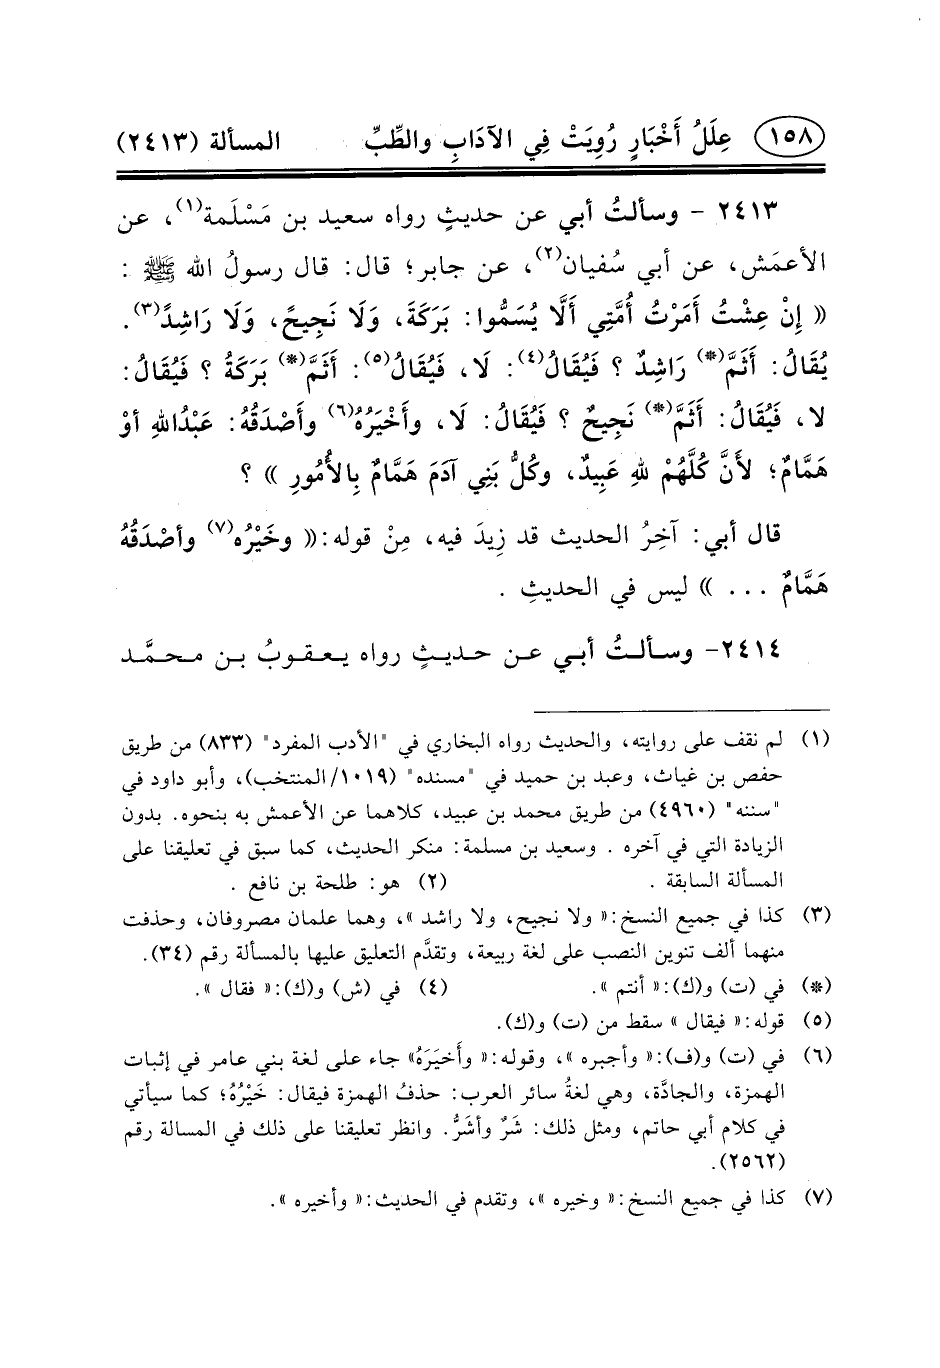 ١٥٨ عِلَلُ أَخْبَارٍ رُوِيَتْ فِي الآدَابِ والطِّبِّ المسألة (٢٤١٣)
٢٤١٣ - وسألتُ أبي عن حديثٍ رواه سعيد بن مَسْلَمة(١)، عن
الأعمَش، عن أبي سُفيان(٢)، عن جابر؛ قال: قال رسولُ الله ﷺ :
(( إِنْ عِشْتُ أَمَرْتُ أُمَّتِي أَلَّا يُسَمُّوا: بَرَكَةَ، وَلَا نَجِيحً، وَلَا رَاشِدً(٣).
يُقَالُ: أَثَمَّ(*) رَاشِدٌ ؟ فَيُقَالُ(٤): لَا، فَيُقَالُ(٥): أَثَمَّ(*) بَرَكَةُ ؟ فَيُقَالُ:
لا، فَيُقَالُ: أَثَمَّ(*) نَجِيحٌ ؟ فَيُقَالُ: لَا، وأَخْيَرُهُ(٦) وأَصْدَقُهُ: عَبْدُاللهِ أوْ
هَمَّامٌ؛ لأَنَّ كُلَّهُمْ للهِ عَبِيدٌ، وكُلُّ بَنِي آدَمَ هَمَّامٌ بِالأُمُورِ )) ؟
قال أبي: آخِرُ الحديث قد زِيدَ فيه، مِنْ قوله:(( وخَيْرُه(٧) وأصْدَقُهُ
هَمَّامٌ ... )) ليس في الحديثِ .
٢٤١٤- وسألتُ أبي عن حديثٍ رواه يعقوبُ بن محمَّد
(١) لم نقف على روايته، والحديث رواه البخاري في "الأدب المفرد" (٨٣٣) من طريق
حفص بن غياث، وعبد بن حميد في "مسنده" (١٠١٩/المنتخب)، وأبو داود في
"سننه" (٤٩٦٠) من طريق محمد بن عبيد، كلاهما عن الأعمش به بنحوه. بدون
الزيادة التي في آخره . وسعيد بن مسلمة: منكر الحديث، كما سبق في تعليقنا على
المسألة السابقة . (٢) هو: طلحة بن نافع .
(٣) كذا في جميع النسخ:(( ولا نجيح، ولا راشد ))، وهما علمان مصروفان، وحذفت
منهما ألف تنوين النصب على لغة ربيعة، وتقدَّم التعليق عليها بالمسألة رقم (٣٤).
(*) في (ت) و(ك):(( أنتم )). (٤) في (ش) و(ك):(( فقال )).
(٥) قوله:(( فيقال )) سقط من (ت) و(ك).
(٦) في (ت) و(ف):(( وأجبره ))، وقوله:(( وأَخيَرَهُ)) جاء على لغة بني عامر في إثبات
الهمزة، والجادَّة، وهي لغةُ سائر العرب: حذفُ الهمزة فيقال: خَيْرُهُ؛ كما سيأتي
في كلام أبي حاتم، ومثل ذلك: شَرٌّ وأَشَرُّ. وانظر تعليقنا على ذلك في المسالة رقم
(٢٥٦٢).
(٧) كذا في جميع النسخ:(( وخيره ))، وتقدم في الحديث:(( وأخيره )).